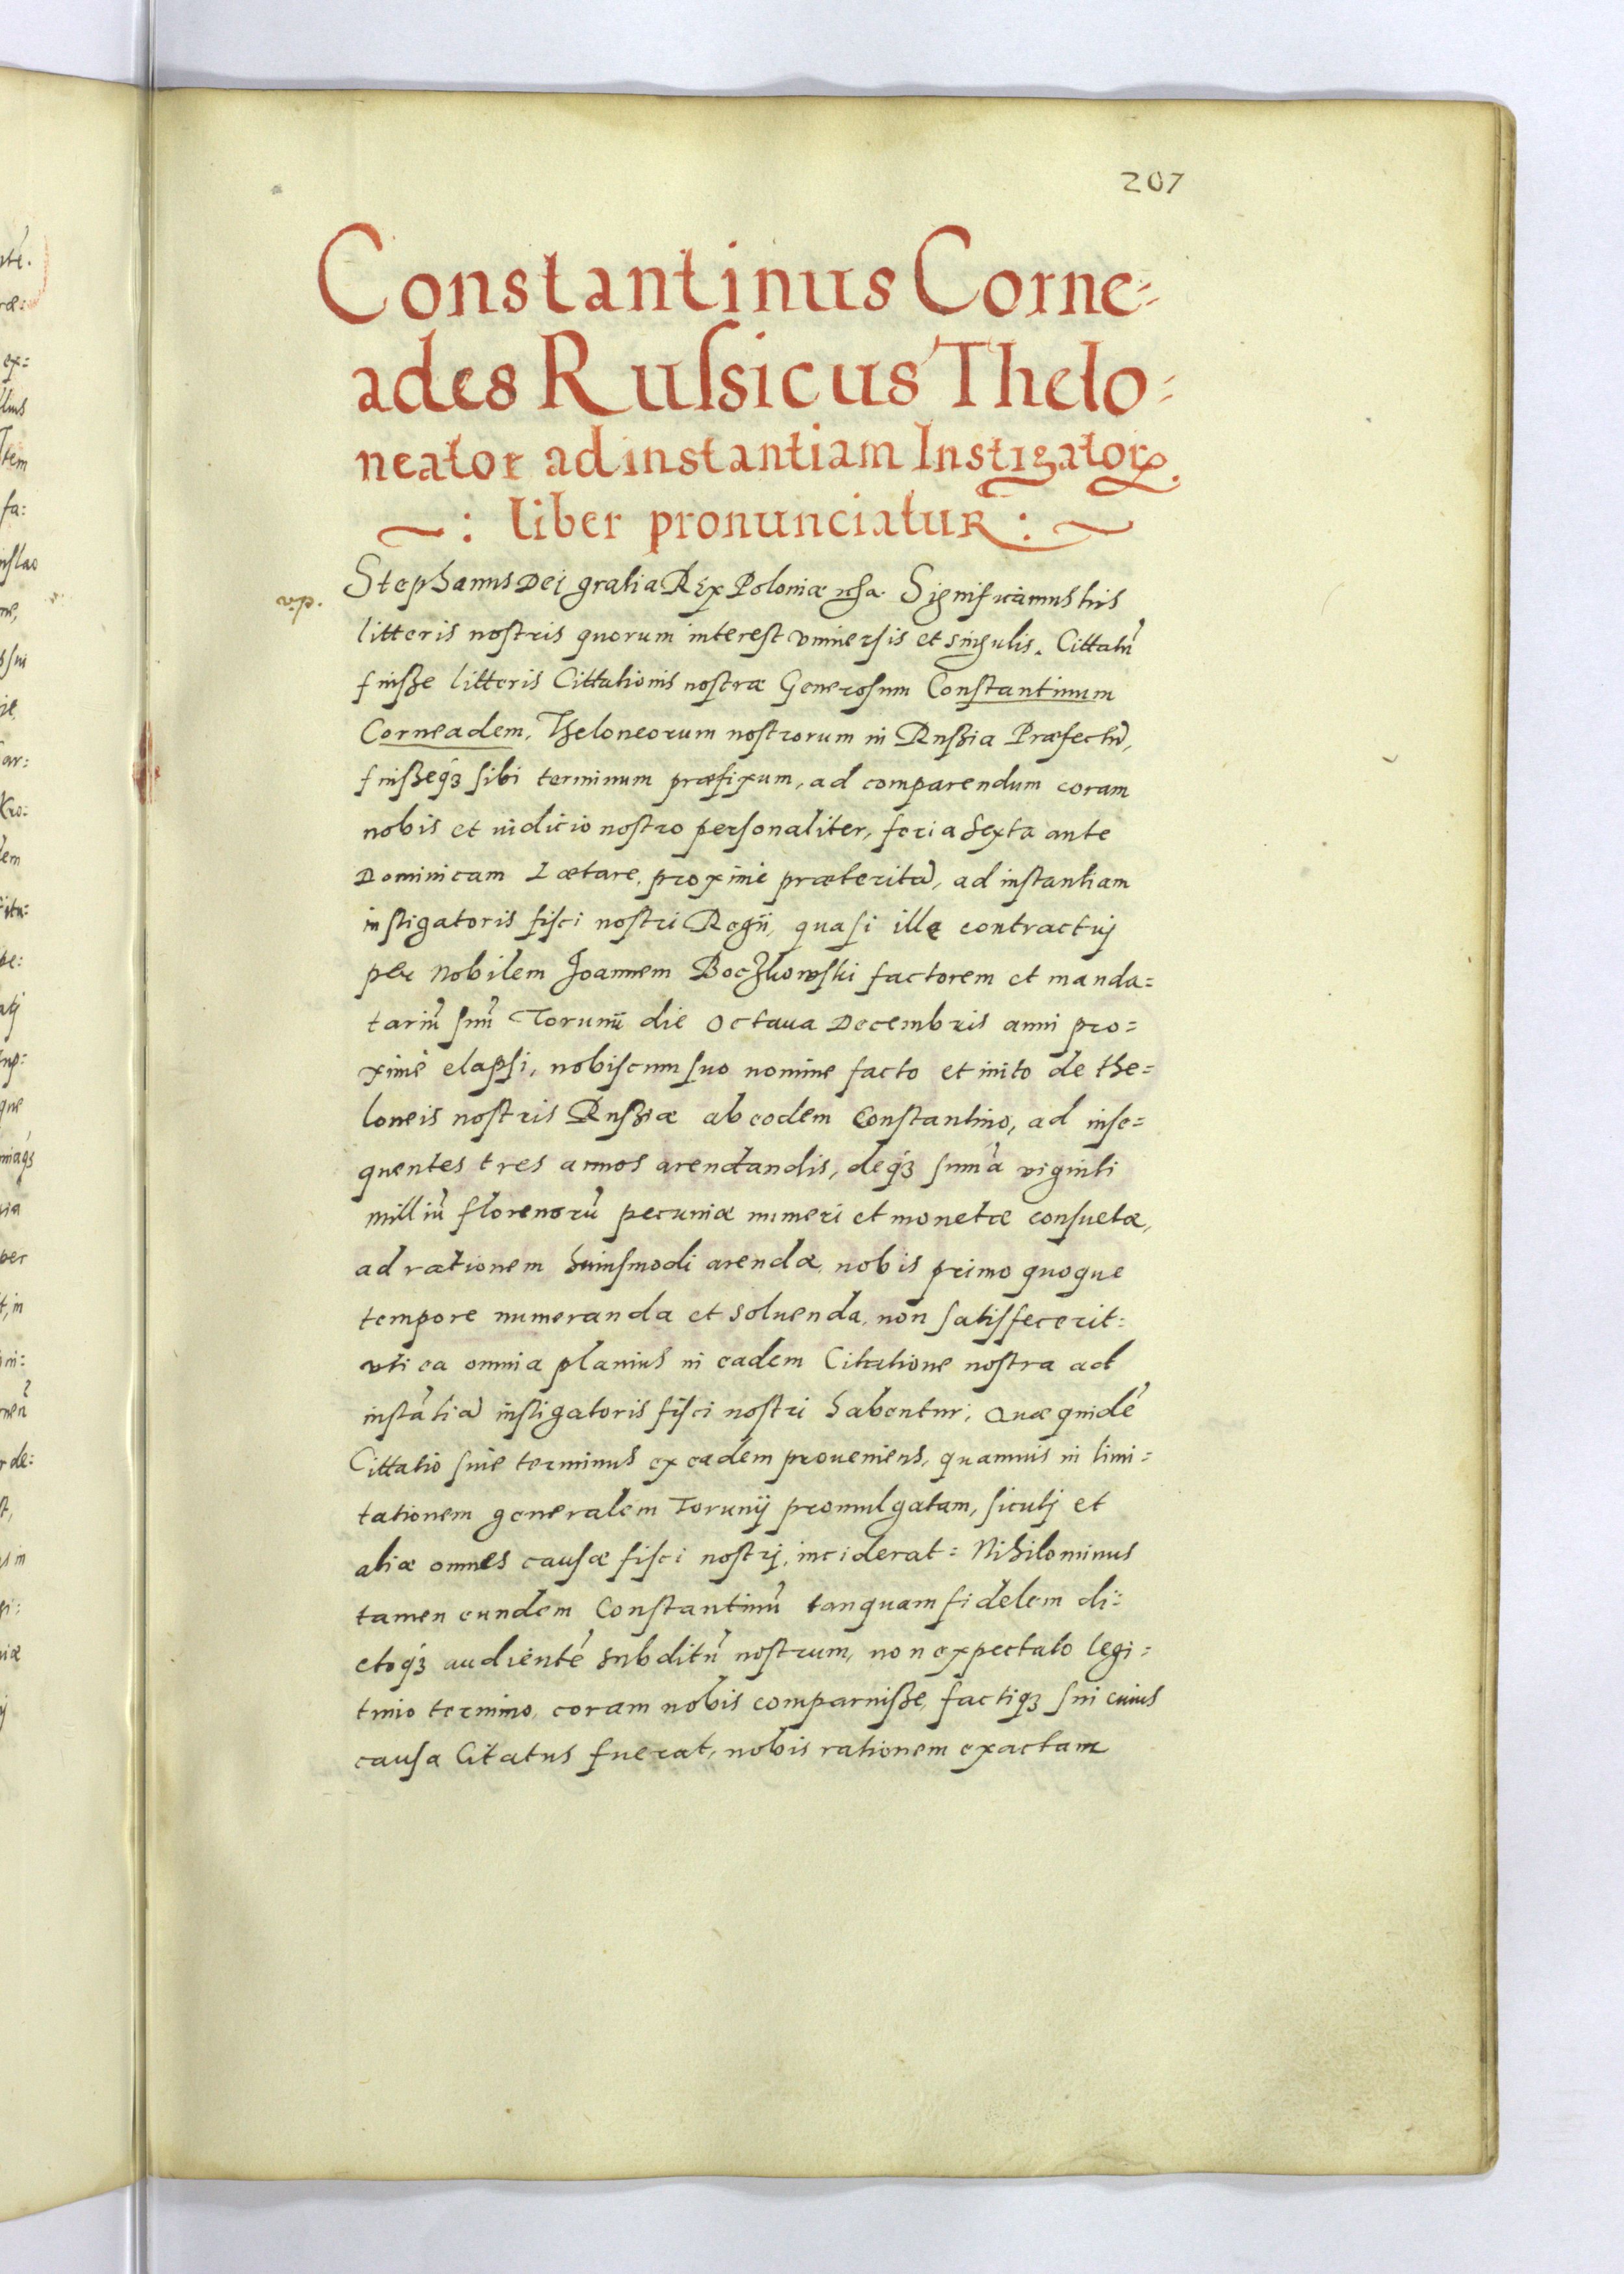 207
Constantinus Corne=
ades Rußicus Thelo=
neator ad instantiam Instigatorꝝ.
~: liber pronunciatur :~
vp.
Stephanus Dej gratia Rex Poloniæ Significamus his
litteris nostris quorum interest vniuersis et singulis. Cittatū
fuisße litteris Cittationis nostræ Generosum Constantinum
Corneadem, Theloneorum nostrorum in Rusßia Præfectū,
fuisßeqꝫ sibi terminum præfixum, ad comparendum coram
nobis et iudicio nostro personaliter, feria Sexta ante
Dominicam Lætare, proximè præteritā, ad instantiam
instigatoris fisci nostri Regij, quasi ille contractuj
per Nobilem Joannem Boczkowski factorem et manda=
tariū suū Torunij die Octaua Decembris anni pro=
xime elapsi, nobiscum suo nomine facto et inito de the=
loneis nostris Rusßiæ ab eodem Constantino, ad inse=
quentes tres annos arendandis, deqꝫ sum̄a viginti
milliū florenorū pecuniæ numeri et monetæ consuetæ,
ad rationem huiusmodi arendæ, nobis primo quoque
tempore numeranda et soluenda, non satisfecerit:
vti ea omnia planius in eadem Citatione nostra ad
instātiā instigatoris fisci nostri habentur; Quæ quidē
Cittatio siue terminus ex eadem proueniens, quamuis in limi=
tationem generalem Torunij promulgatam, sicutj et
aliæ omnes causæ fisci nostrj, inciderat: Nihilominus
tamen eundem Constantinū tanquam fidelem di=
ctoqꝫ audientē subditū nostrum, non expectato legi=
timo termino, coram nobis comparuisße, factiqꝫ sui cuius
causa Citatus fuerat, nobis rationem exactam